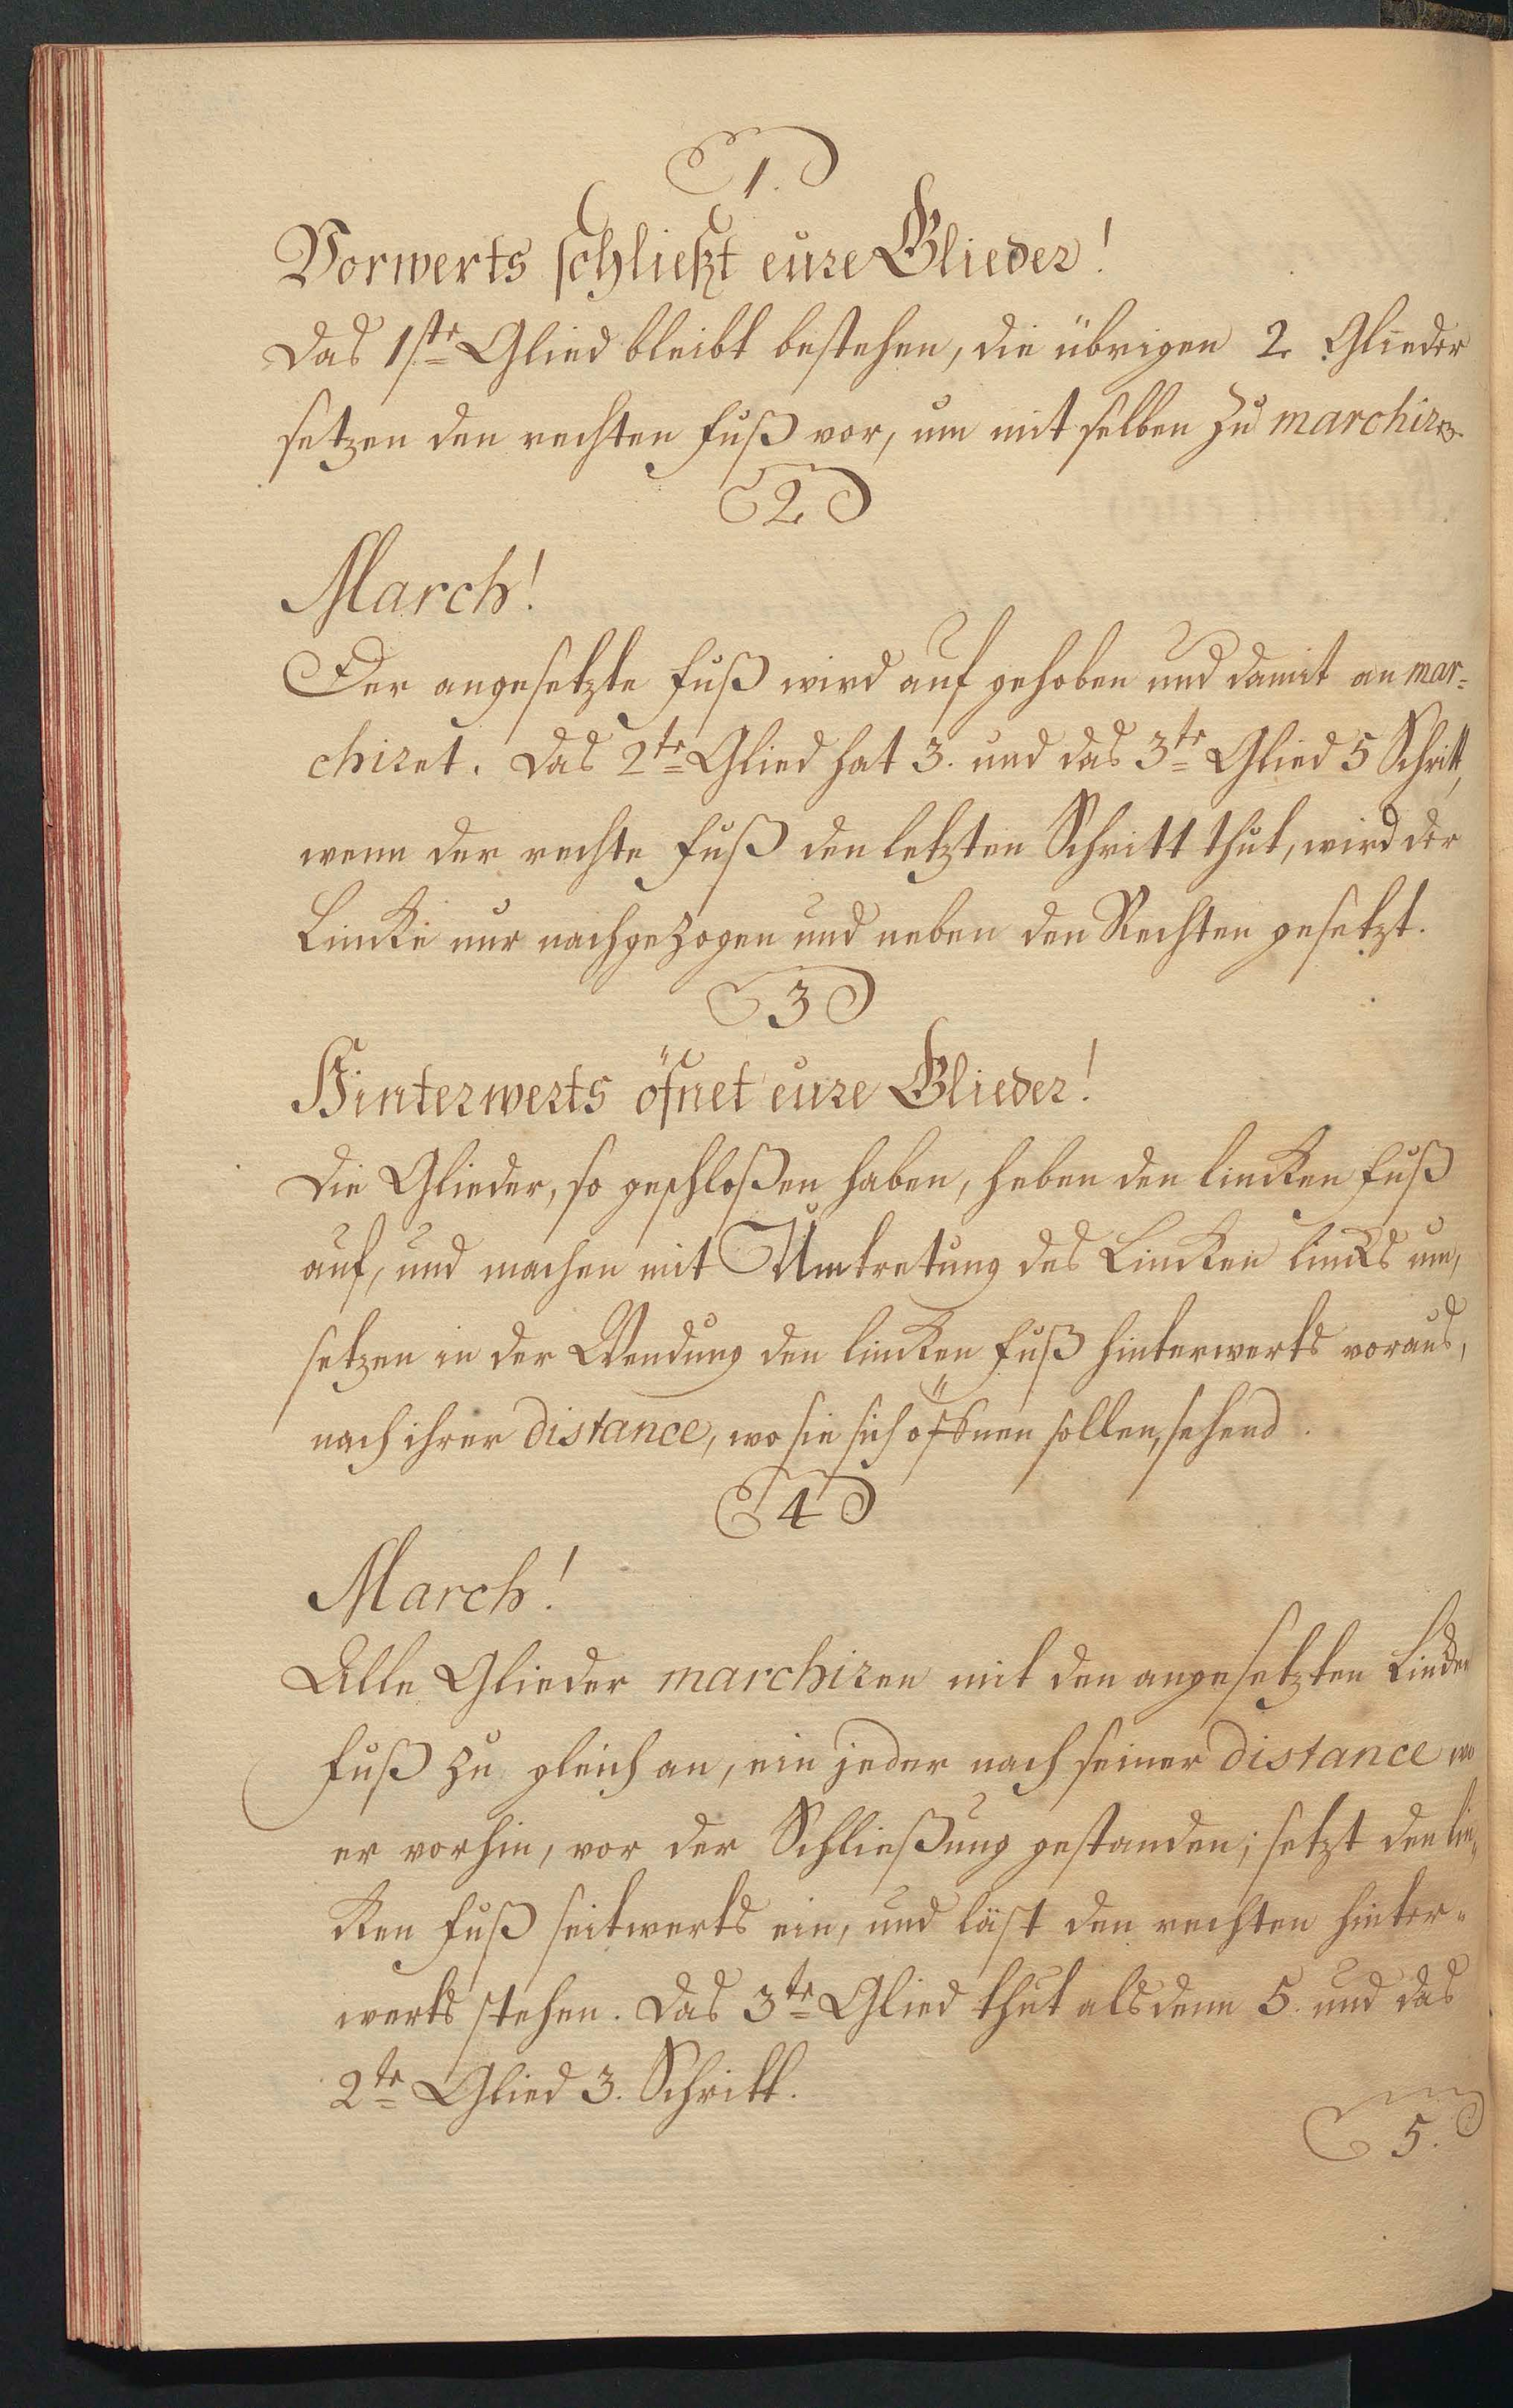 1.
Vorwerts schließt eure Glieder!
Das 1ste Glied bleibt bestehen, die übrigen 2. Glieder
setzen den rechten Fuß vor, um mit selben zu marchiren.
2
March!
Der angesetzte Fuß wird auf gehoben und damit an mar=
chiret. Das 2te Glied hat 3. und das 3te Glied 5 Schritt,
wenn der rechte Fuß den letzten Schritt thut, wird der
Lincke nur nachgezogen und neben den Rechten gesetzt.
3
Hinterwerts öfnet eure Glieder!
Die Glieder, so geschloßen haben, heben den lincken Fuß
auf, und machen mit Umtretung des Lincken lincks um,
setzen in der Wendung den lincken Fuß hinterwerts voraus,
nach ihrer distance, wo sie sich öffnen sollen, sehend.
4
March!
Alle Glieder marchiren mit den angesetzten
Fuß zu gleich an, ein jeder nach seiner distance wo
er vorhin, vor der Schließung gestanden; setzt den lin=
cken Fuß seitwerts ein, und läst den rechten hinter=
werts stehen. Das 3te Glied thut alsdenn 5. und das
2te Glied 3. Schritt.
5.